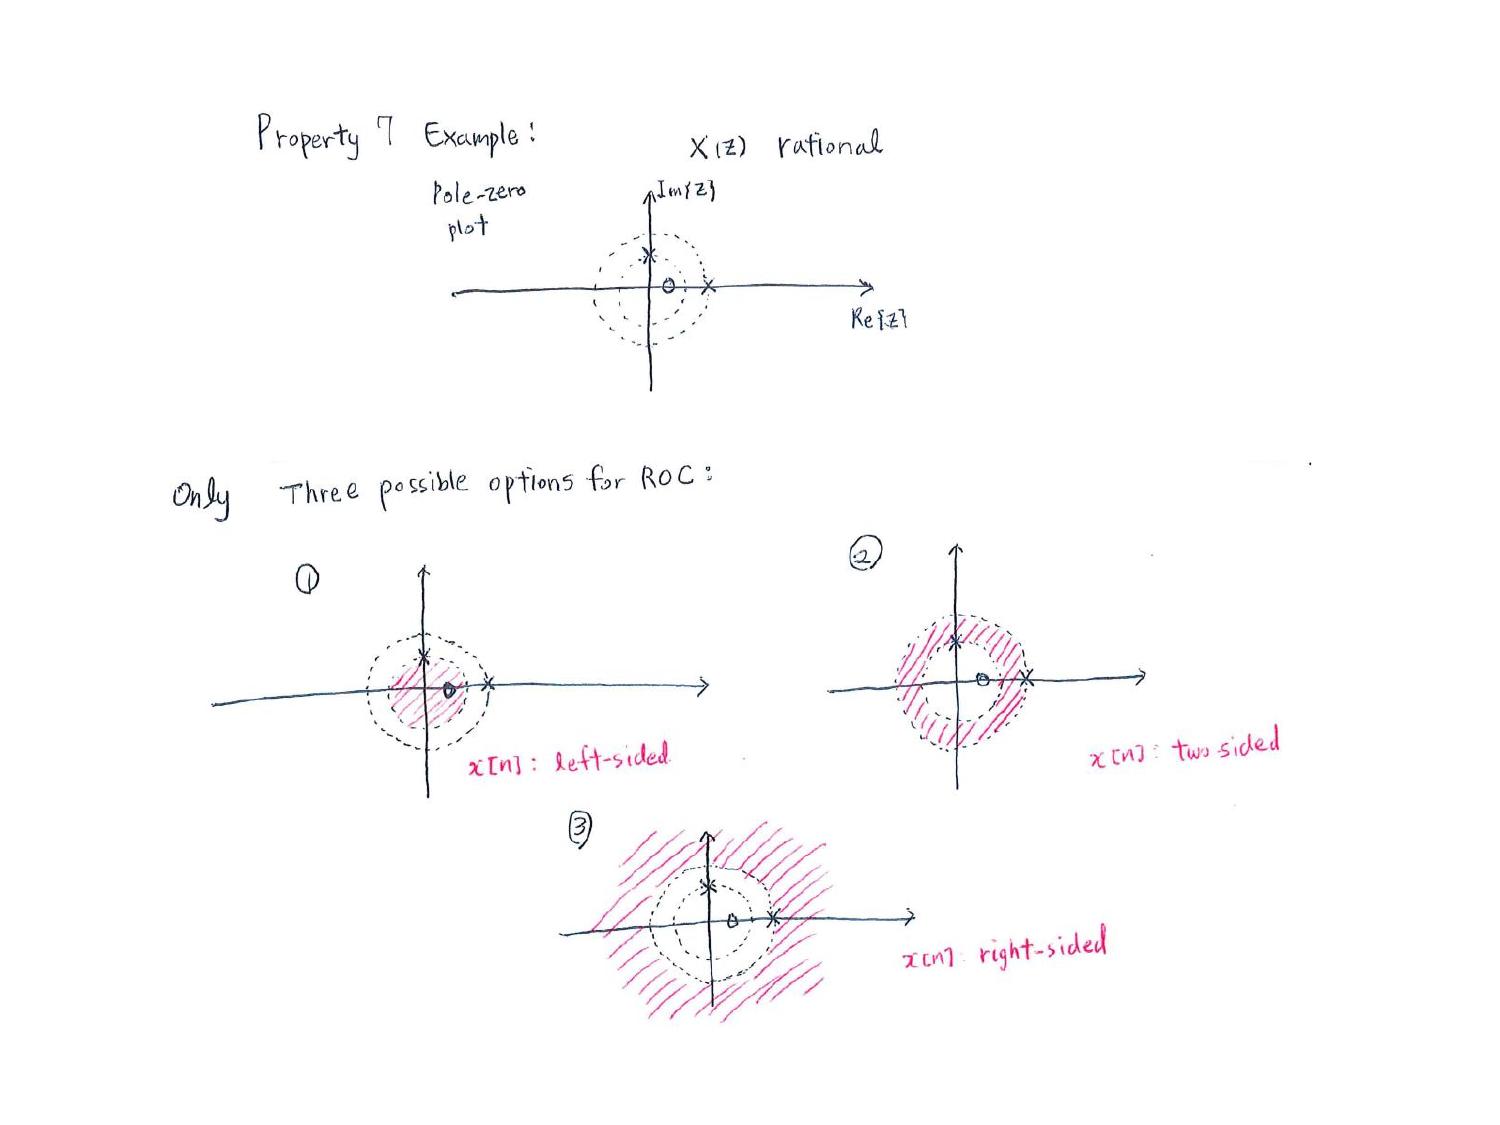 Property 7 Example:
X(z) rational
Pole-zero
plot
Im{z}
Re{z}
Only Three possible options for ROC:
①
②
x[n]: left-sided
x[n]: two sided
③
x[n]: right-sided